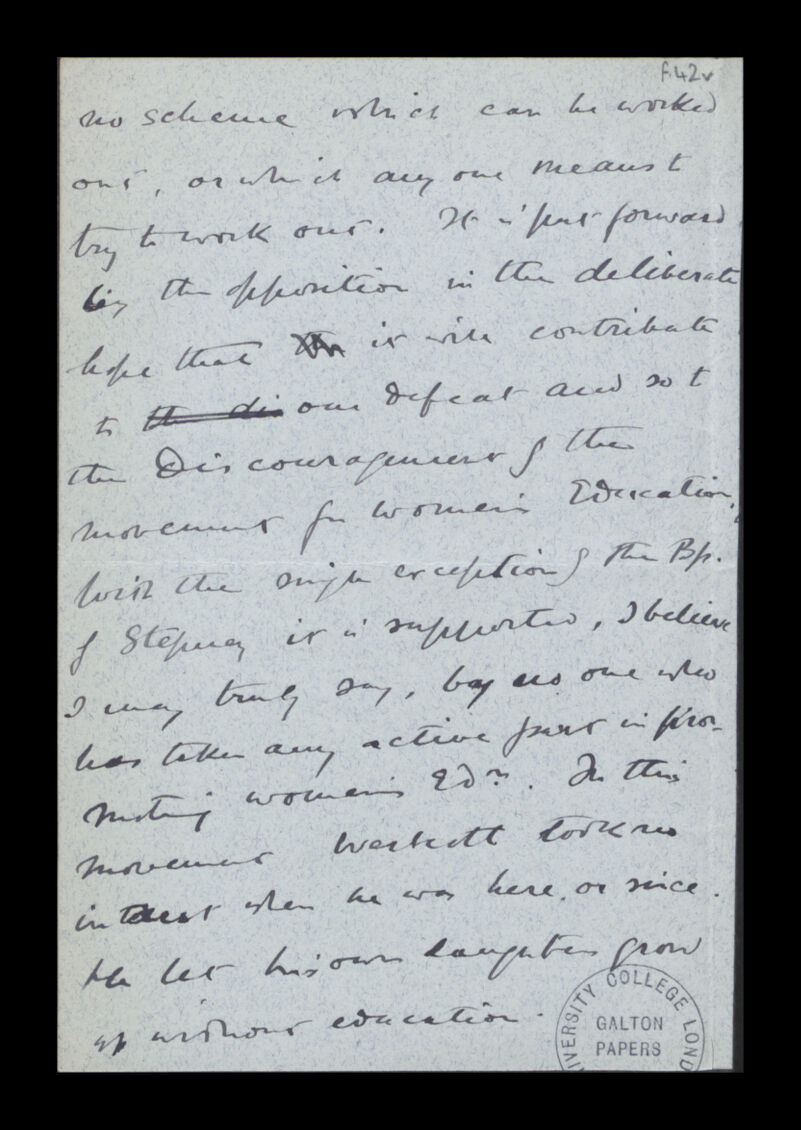 f.42v
no scheme which can be worked
out, or which any one means to
try to work out. It is put forward
by the opposition in the deliberate
hope that it will contribute
to our defeat and so to
the Discouragement of the
movement for women's Education.
With the single exception of the Bp.
of Stepney it is supported, I believe
I may truly say, by no one who
has taken any active part in pro-
moting women's Edn. In this
movement Westcott took no
interest when he was here, or since.
He let his own daughters grow
up without education.
UNIVERSITY COLLEGE LOND
GALTON
PAPERS